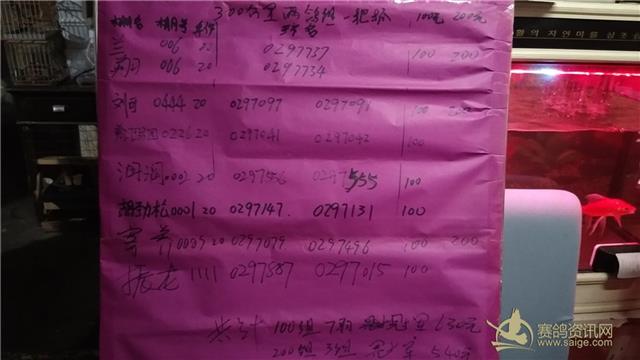 300公里两鸽组一把抓 100元 200元
棚名 棚号 单价 环号
兰 006 20 0297737 100 200
006 20 0297734
刘可 0444 20 0297097 0297091 100 200
0226 20 0297041 0297042 100
润润 0002 20 0297556 555 100
胡劲松 0001 20 0297147 0297131 100
0009 20 0297079 0297496 100 200
振龙 1111 0297887 0297015 100
共计 100组 7羽 630元
200组 3组 冠军 540元
赛鸽资讯网
www.saige.com